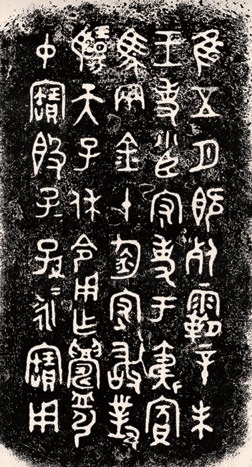 隹五月既死霸辛未
王吏小臣守吏于夷賓
馬兩金十鈞守敢對
揚天子休令用乍鑄引
中寶𣪘子孫永寶用